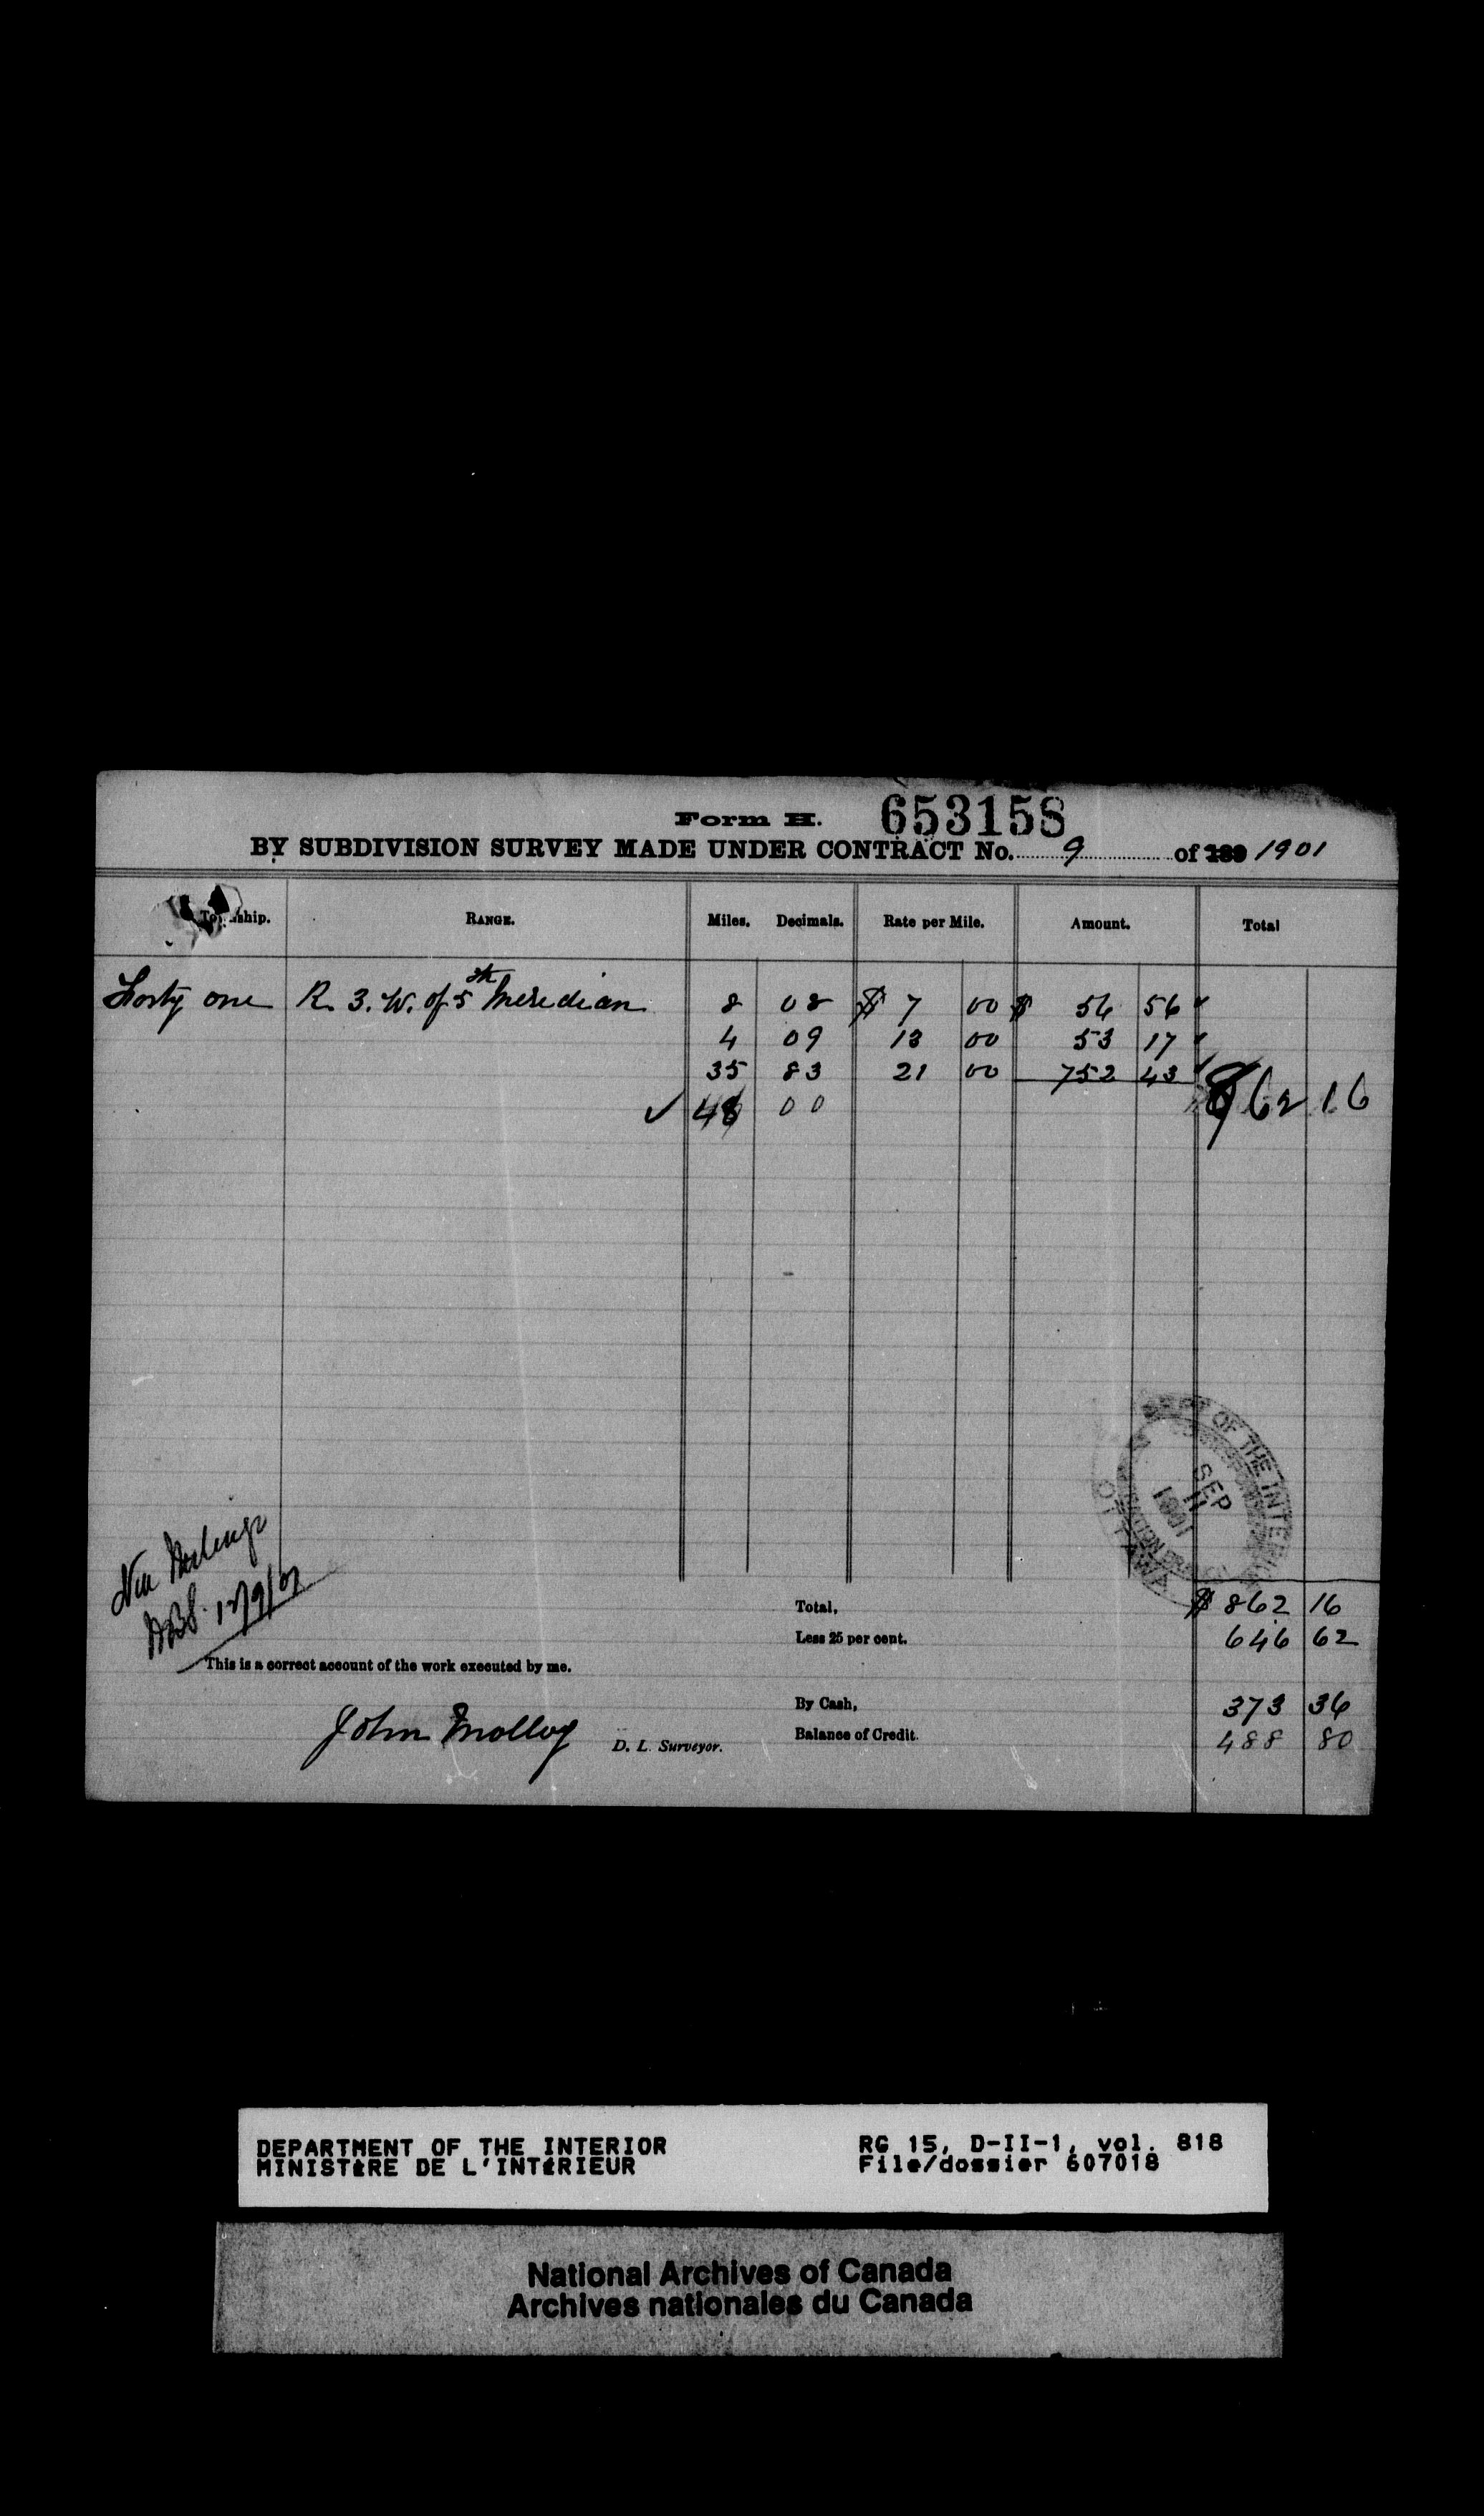 Form H. 653158
BY SUBDIVISION SURVEY MADE UNDER CONTRACT No. 9 of 189 1901
Township. RANGE. Miles. Decimals. Rate per Mile. Amount. Total
Forty one R. 3. W. of 5th Meridian 8 08 $ 7 00 $ 56 56
4 09 13 00 53 17
35 83 21 00 752 43
✓ 48 00 862 16
DEPT OF THE INTERIOR
SEP
11
1901
OTTAWA
Total, $ 862 16
Less 25 per cent. 646 62
This is a correct account of the work executed by me.
By Cash, 373 36
John Molloy D. L. Surveyor. Balance of Credit. 488 80
DEPARTMENT OF THE INTERIOR RG 15, D-II-1, vol. 818
MINISTÈRE DE L'INTÉRIEUR File/dossier 607018
National Archives of Canada
Archives nationales du Canada